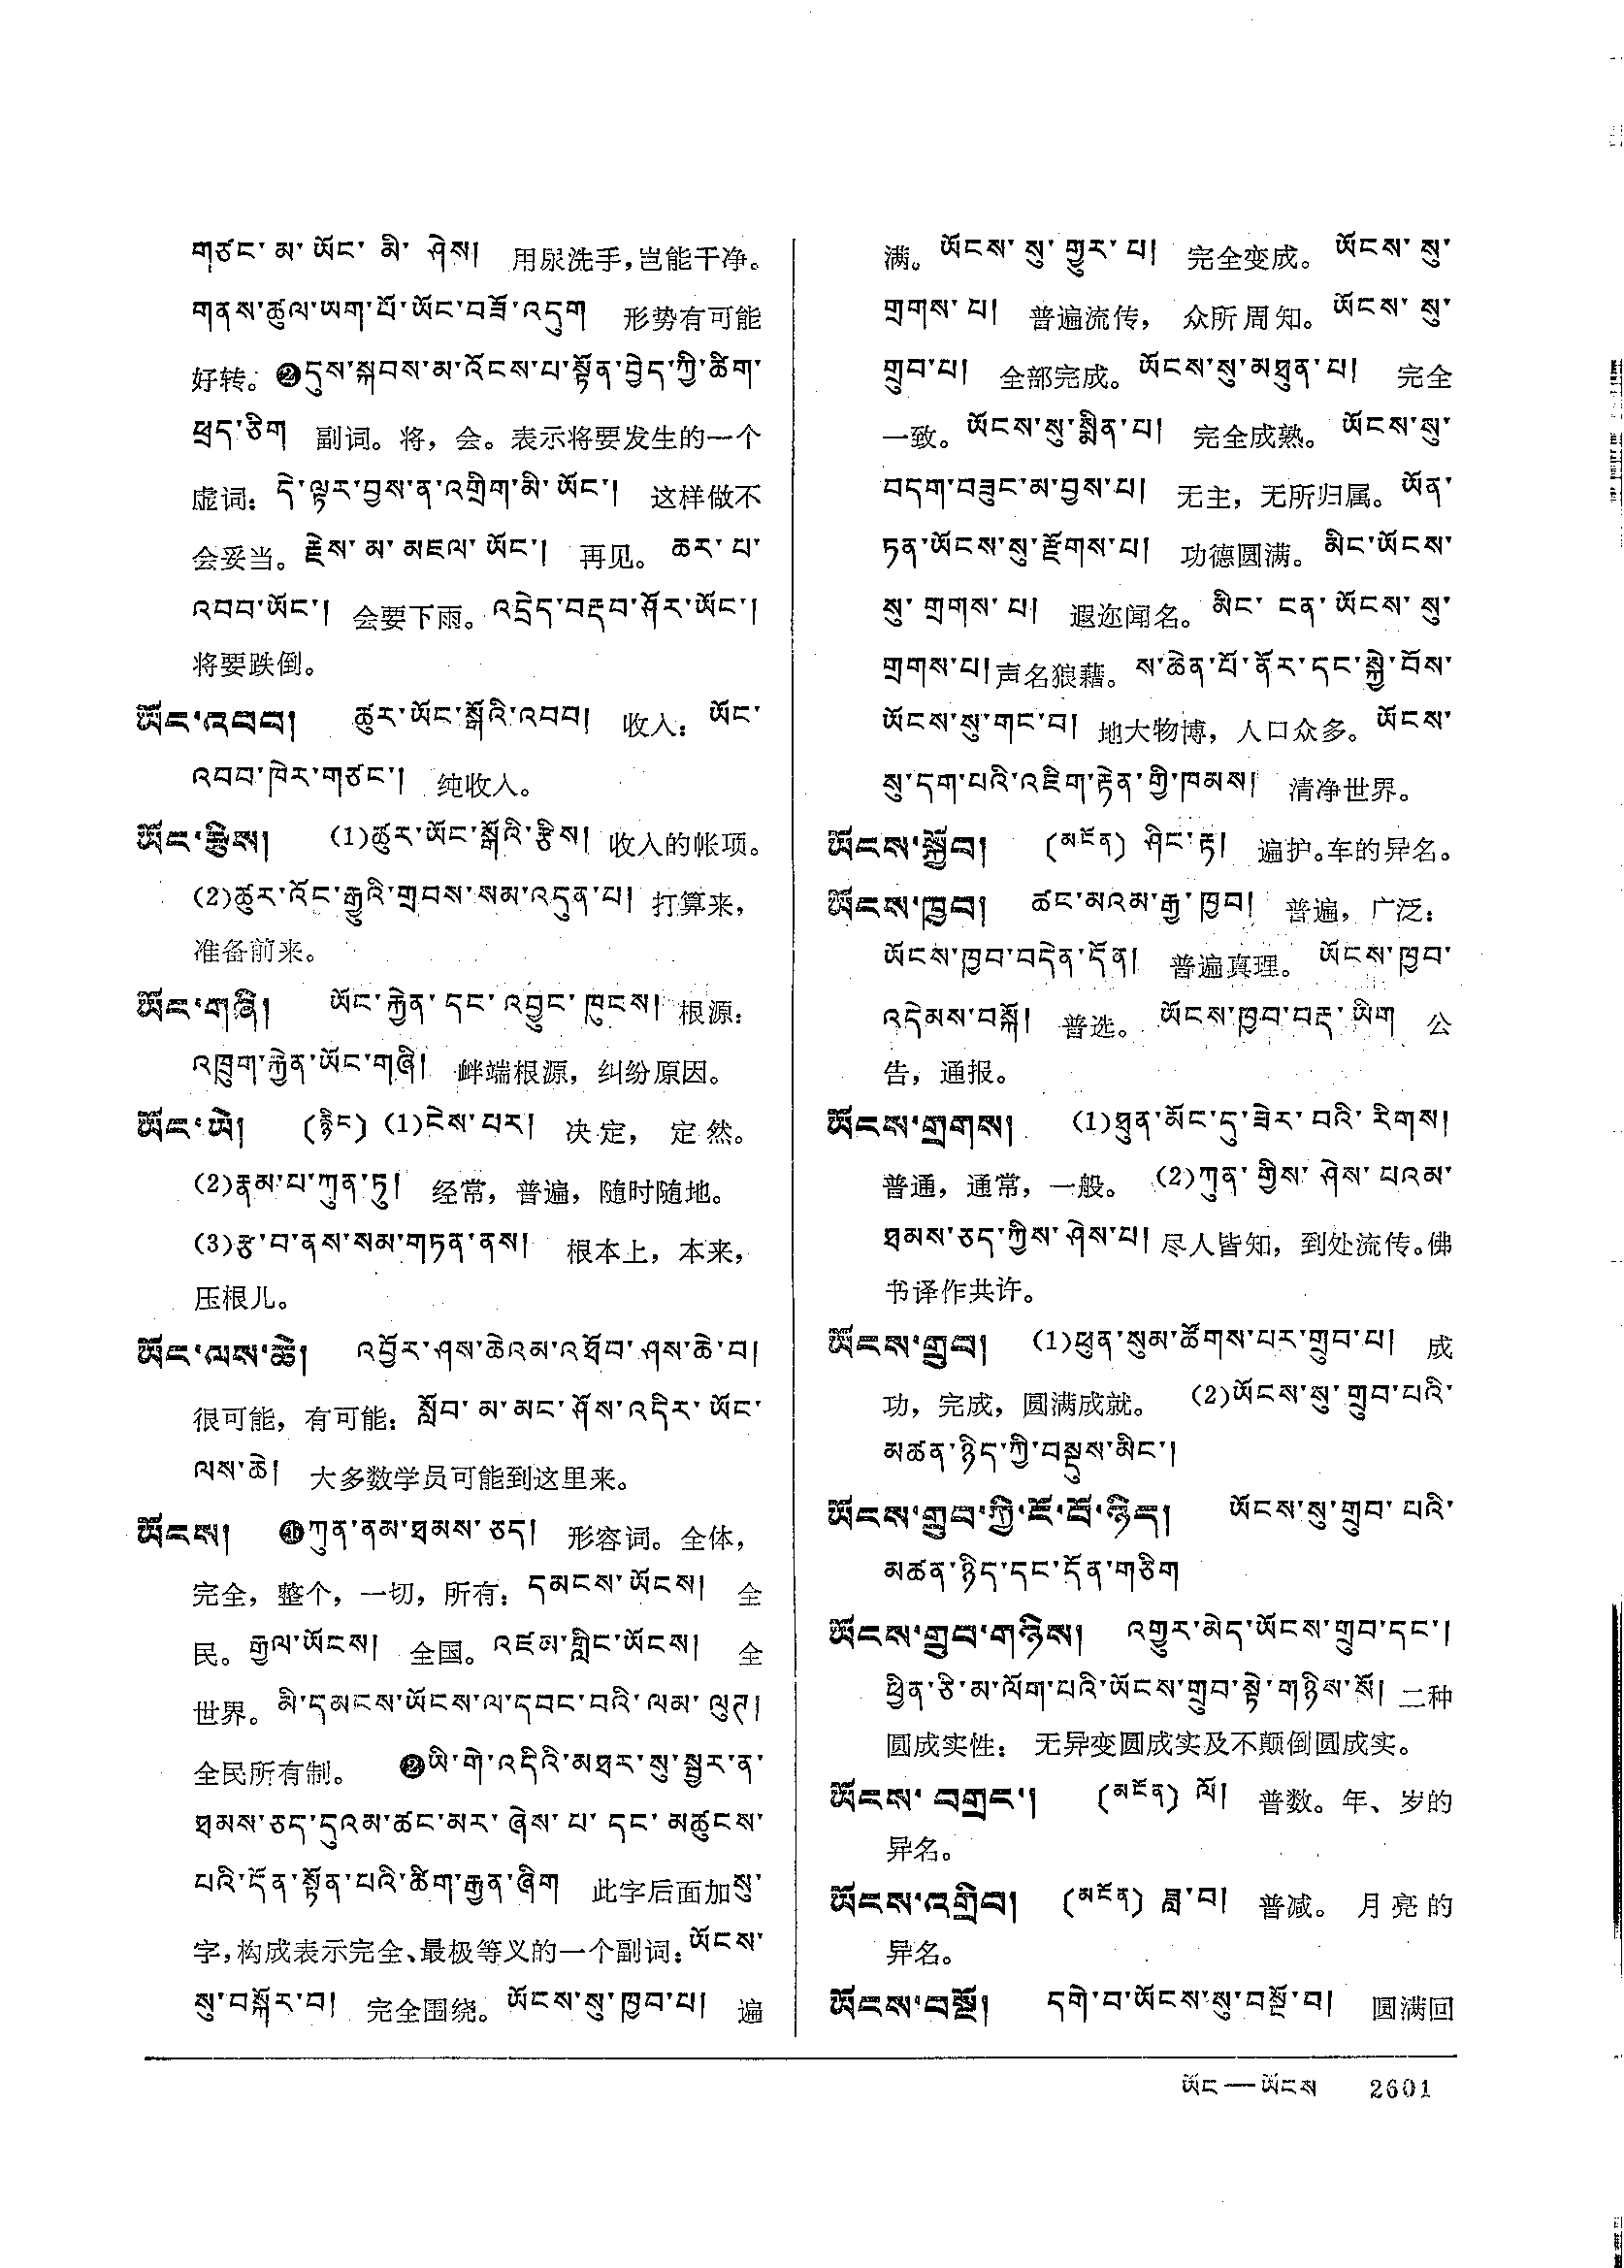 གཙང་མ་ཡོང་མི་ཤེས། 用尿洗手，岂能干净。
གནས་ཚུལ་ཡག་པོ་ཡོང་བཟོ་འདུག 形势有可能
好转。❷དུས་སྐབས་མ་འོངས་པ་སྟོན་བྱེད་ཀྱི་ཚིག་
ཕྲད་ཅིག 副词。将，会。表示将要发生的一个
虚词：དེ་ལྟར་བྱས་ན་འགྲིག་མི་ཡོང་། 这样做不
会妥当。རྗེས་མ་མཇལ་ཡོང་། 再见。ཆར་པ་
འབབ་ཡོང་། 会要下雨。འདྲེད་བརྡབ་ཤོར་ཡོང་།
将要跌倒。
ཡོང་འབབ། ཚུར་ཡོང་སྒོའི་འབབ། 收入：ཡོང་
འབབ་ཁེར་གཙང་། 纯收入。
ཡོང་རྩིས། (1)ཚུར་ཡོང་སྒོའི་རྩིས། 收入的帐项。
(2)ཚུར་འོང་རྒྱུའི་གྲབས་སམ་འདུན་པ། 打算来，
准备前来。
ཡོང་གཞི། ཡོང་རྐྱེན་དང་འབྱུང་ཁུངས། 根源：
འཁྲུག་རྐྱེན་ཡོང་གཞི། 衅端根源，纠纷原因。
ཡོང་ཡེ། (རྙིང) (1)ངེས་པར། 决定，定然。
(2)རྣམ་པ་ཀུན་ཏུ། 经常，普遍，随时随地。
(3)རྩ་བ་ནས་སམ་གཏན་ནས། 根本上，本来，
压根儿。
ཡོང་ལས་ཆེ། འབྱོར་ཤས་ཆེའམ་འཐོབ་ཤས་ཆེ་བ།
很可能，有可能：སློབ་མ་མང་ཤོས་འདིར་ཡོང་
ལས་ཆེ། 大多数学员可能到这里来。
ཡོངས། ❶ཀུན་ནམ་ཐམས་ཅད། 形容词。全体，
完全，整个，一切，所有：དམངས་ཡོངས། 全
民。རྒྱལ་ཡོངས། 全国。འཛམ་གླིང་ཡོངས། 全
世界。མི་དམངས་ཡོངས་ལ་དབང་བའི་ལམ་ལུཊ།
全民所有制。 ❷ཡི་གེ་འདིའི་མཐར་སུ་སྦྱར་ན་
ཐམས་ཅད་དུའམ་ཚང་མར་ཞེས་པ་དང་མཚུངས་
པའི་དོན་སྟོན་པའི་ཚིག་རྒྱན་ཞིག 此字后面加སུ་
字，构成表示完全、最极等义的一个副词：ཡོངས་
སུ་བསྐོར་བ། 完全围绕。ཡོངས་སུ་ཁྱབ་པ། 遍
满。ཡོངས་སུ་གྱུར་པ། 完全变成。ཡོངས་སུ་
གྲགས་པ། 普遍流传，众所周知。ཡོངས་སུ་
གྲུབ་པ། 全部完成。ཡོངས་སུ་མཐུན་པ། 完全
一致。ཡོངས་སུ་སྨིན་པ། 完全成熟。ཡོངས་སུ་
བདག་བཟུང་མ་བྱས་པ། 无主，无所归属。ཡོན་
ཏན་ཡོངས་སུ་རྫོགས་པ། 功德圆满。མིང་ཡོངས་
སུ་གྲགས་པ། 遐迩闻名。མིང་ངན་ཡོངས་སུ་
གྲགས་པ།声名狼藉。ས་ཆེན་པོ་ནོར་དང་སྐྱེ་བོས་
ཡོངས་སུ་གང་བ། 地大物博，人口众多。ཡོངས་
སུ་དག་པའི་འཇིག་རྟེན་གྱི་ཁམས། 清净世界。
ཡོངས་སྐྱོབ། (མངོན) ཤིང་རྟ། 遍护。车的异名。
ཡོངས་ཁྱབ། ཚང་མའམ་རྒྱ་ཁྱབ། 普遍，广泛：
ཡོངས་ཁྱབ་བདེན་དོན། 普遍真理。ཡོངས་ཁྱབ་
འདེམས་བསྐོ། 普选。ཡོངས་ཁྱབ་བརྡ་ཡིག 公
告，通报。
ཡོངས་གྲགས། (1)ཐུན་མོང་དུ་ཟེར་བའི་རིགས།
普通，通常，一般。(2)ཀུན་གྱིས་ཤེས་པའམ་
ཐམས་ཅད་ཀྱིས་ཤེས་པ། 尽人皆知，到处流传。佛
书译作共许。
ཡོངས་གྲུབ། (1)ཕུན་སུམ་ཚོགས་པར་གྲུབ་པ། 成
功，完成，圆满成就。 (2)ཡོངས་སུ་གྲུབ་པའི་
མཚན་ཉིད་ཀྱི་བསྡུས་མིང་།
ཡོངས་གྲུབ་ཀྱི་ངོ་བོ་ཉིད། ཡོངས་སུ་གྲུབ་པའི་
མཚན་ཉིད་དང་དོན་གཅིག
ཡོངས་གྲུབ་གཉིས། འགྱུར་མེད་ཡོངས་གྲུབ་དང་།
ཕྱིན་ཅི་མ་ལོག་པའི་ཡོངས་གྲུབ་སྟེ་གཉིས་སོ། 二种
圆成实性：无异变圆成实及不颠倒圆成实。
ཡོངས་བགྲང་། (མངོན) ལོ། 普数。年、岁的
异名。
ཡོངས་འགྲིབ། (མངོན) ཟླ་བ། 普减。月亮的
异名。
ཡོངས་བསྔོ། དགེ་བ་ཡོངས་སུ་བསྔོ་བ། 圆满回
ཡོང—ཡོངས 2601